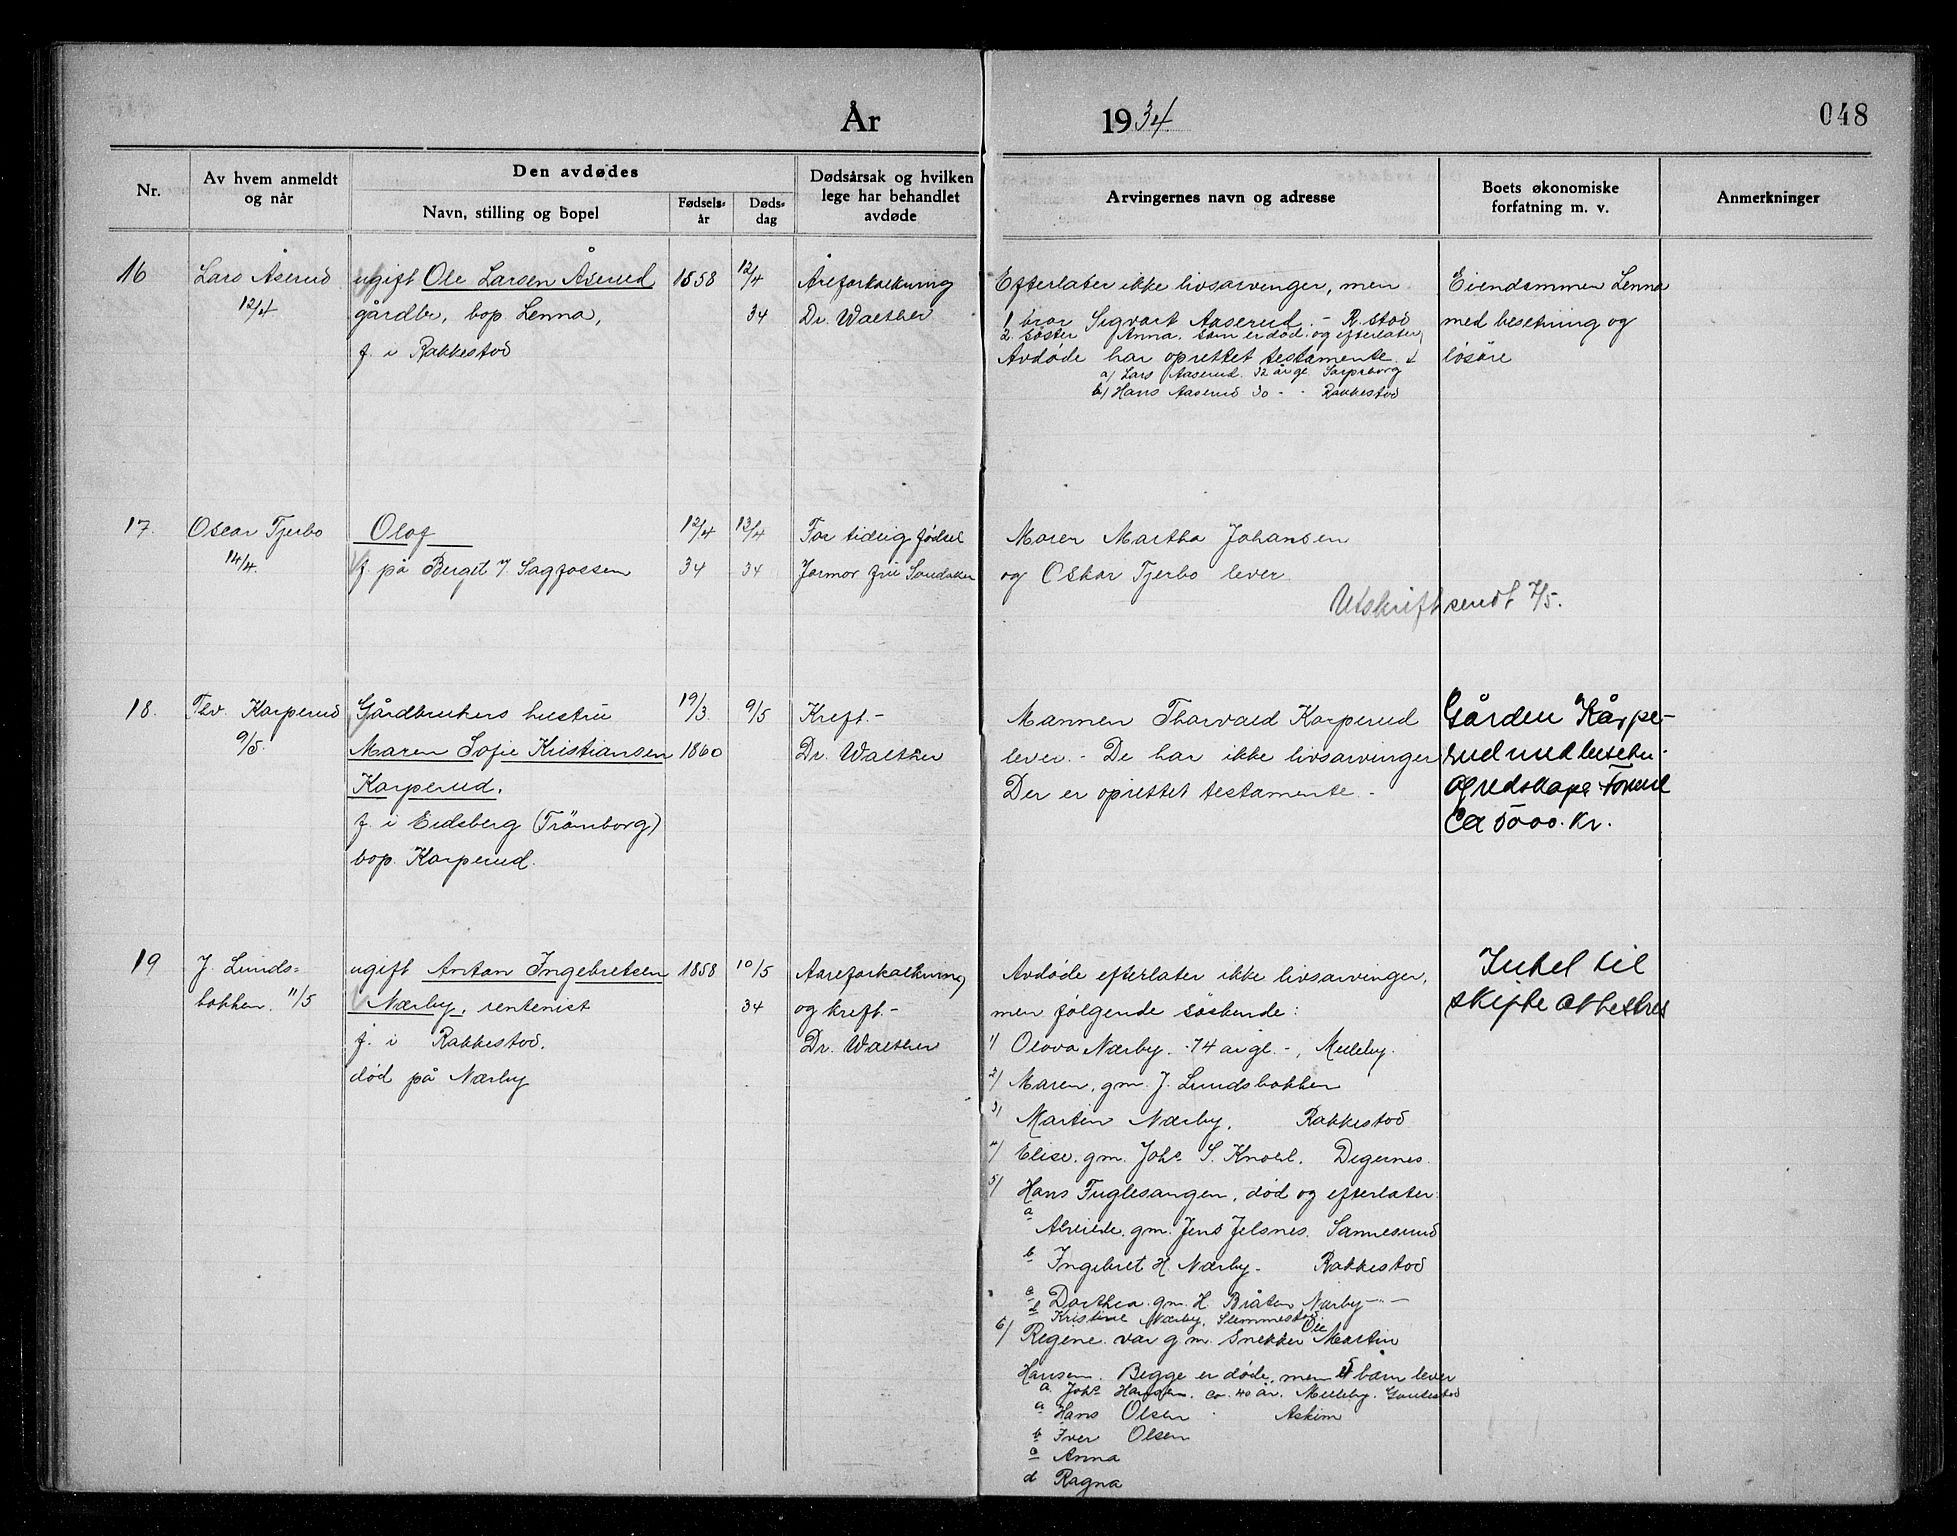 År 1934
048
Nr.
Av hvem anmeldt og når
Den avdødes
Navn, stilling og bopel
Fødsels-år
Døds-dag
Dødsårsak og hvilken lege har behandlet avdøde
Arvingernes navn og adresse
Boets økonomiske forfatning m. v.
Anmerkninger
16
Lars Åserud
12/4
ugift Ole Larsen Åserud
gårdbr, bop. Lenna,
f. i Rakkestad
1858
12/4
34
Åreforkalkning
Dr. Walther
Efterlater ikke livsarvinger, men
1 bror Sigvart Aaserud. - R.stad
2. søster Anna. som er død og efterlater
Avdøde har oprettet testamente.
a) Lars Aaserud. 32 år gl. Sarpsborg
b) Hans Aaserud 30 - - Rakkestad
Eiendommen Lenna
med besetning og
løsøre
17.
Oscar Tjerbo
14/4.
Olaf
f. på Berget /. Sagfossen
12/4
34
13/4
34
For tidlig fødsel
Jormor fru Sandaker
Moren Martha Johansen
og Oskar Tjerbo lever.
Utskrift sendt 7/5.
18.
Thv. Karperud
9/5.
Gårdbrukers hustru
Maren Sofie Kristiansen
Karperud.
f. i Eidsberg (Trömborg)
bop. Karperud.
19/3.
1860
9/5
Kreft. -
Dr. Walther
Mannen Thorvald Karperud
lever. - De har ikke livsarvinger
Der er oprettet testamente. -
Gården Kårpe-
rud med besetn.
og redskape
Ca 5000. kr.
19
J. Lunds=
bakken. 11/5
ugift Anton Ingebretsen
Nærby, rentenist
f. i Rakkestad.
død på Nærby
1858
10/5
34
Aareforkalkning
og kreft. -
Dr. Walther
Avdøde efterlater ikke livsarvinger,
men følgende søskende:
1) Olava Nærby. - 74 år gl. -, Melleby.
2) Maren, gm. J. Lundsbakken
3) Martin Nærby, Rakkestad
4) Elise. gm. Johs. S. Knold. Degernes.
5) Hans Fuglesangen, død og efterlater
a Alvilde. gm. Jens Jelsnes. Sannesund
b Ingebret H. Nærby - Rakkestad
c Dorthea. gm. H. Bråten Nærby - " -
d Kristine Nærby. Slemmestad
6) Regene. var gm. snekker Ole Martin
Hansen. Begge er døde, men 5 barn lever
a. Johs Hansen. ca. 40 år. Melleby.
a Hans Olsen Askim
b Iver Olsen
c Anna
d Ragna
skifte